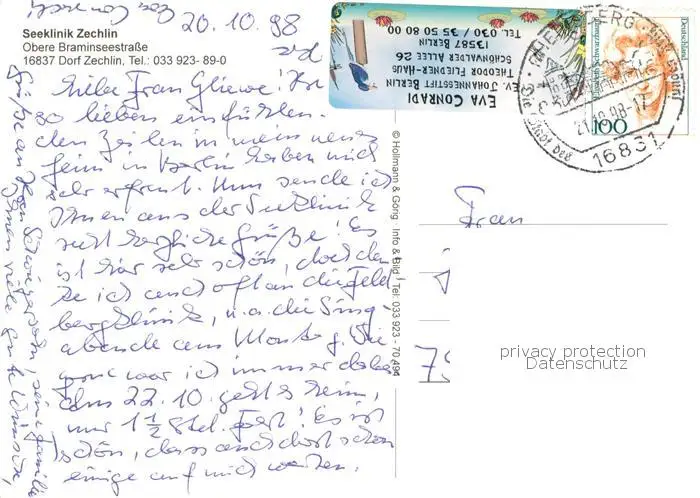 Seeklinik Zechlin
Obere Braminseestraße
16837 Dorf Zechlin, Tel.: 033 923- 89-0
20.10.98
Liebe Frau Gliewe! Ihre
so lieben einfühlen-
den Zeilen in mein neues
Heim in Berlin haben mich
sehr erfreut. Nun sende ich
Ihnen aus der Seeklinik
recht herzliche Grüße! Es
ist hier sehr schön, doch den-
ke ich auch oft an die Feld-
bergklinik, u.a. die Sing-
abende am Montag. Sie
war ich immer dabei
Am 22.10. geht's heim,
nur 1 1/2 Std. Fahrt! Es ist
schön, dass auch dort schon
einige auf mich warten.
Grüße an Ihren Schwiegersohn, seine Familie
Ihnen viele gute Wünsche,
Eva Conradi
EVA CONRADI
EV. JOHANNESSTIFT BERLIN
THEODOR FLIEDNER-HAUS
SCHÖNWALDER ALLEE 26
13587 BERLIN
TEL. 030 / 35 50 80 00
© Hollmann & Görig · Info & Bild · Tel. 033 923 - 70 494
Deutschland
100
21.10.98-17
16831
Frau
75
privacy protection
Datenschutz